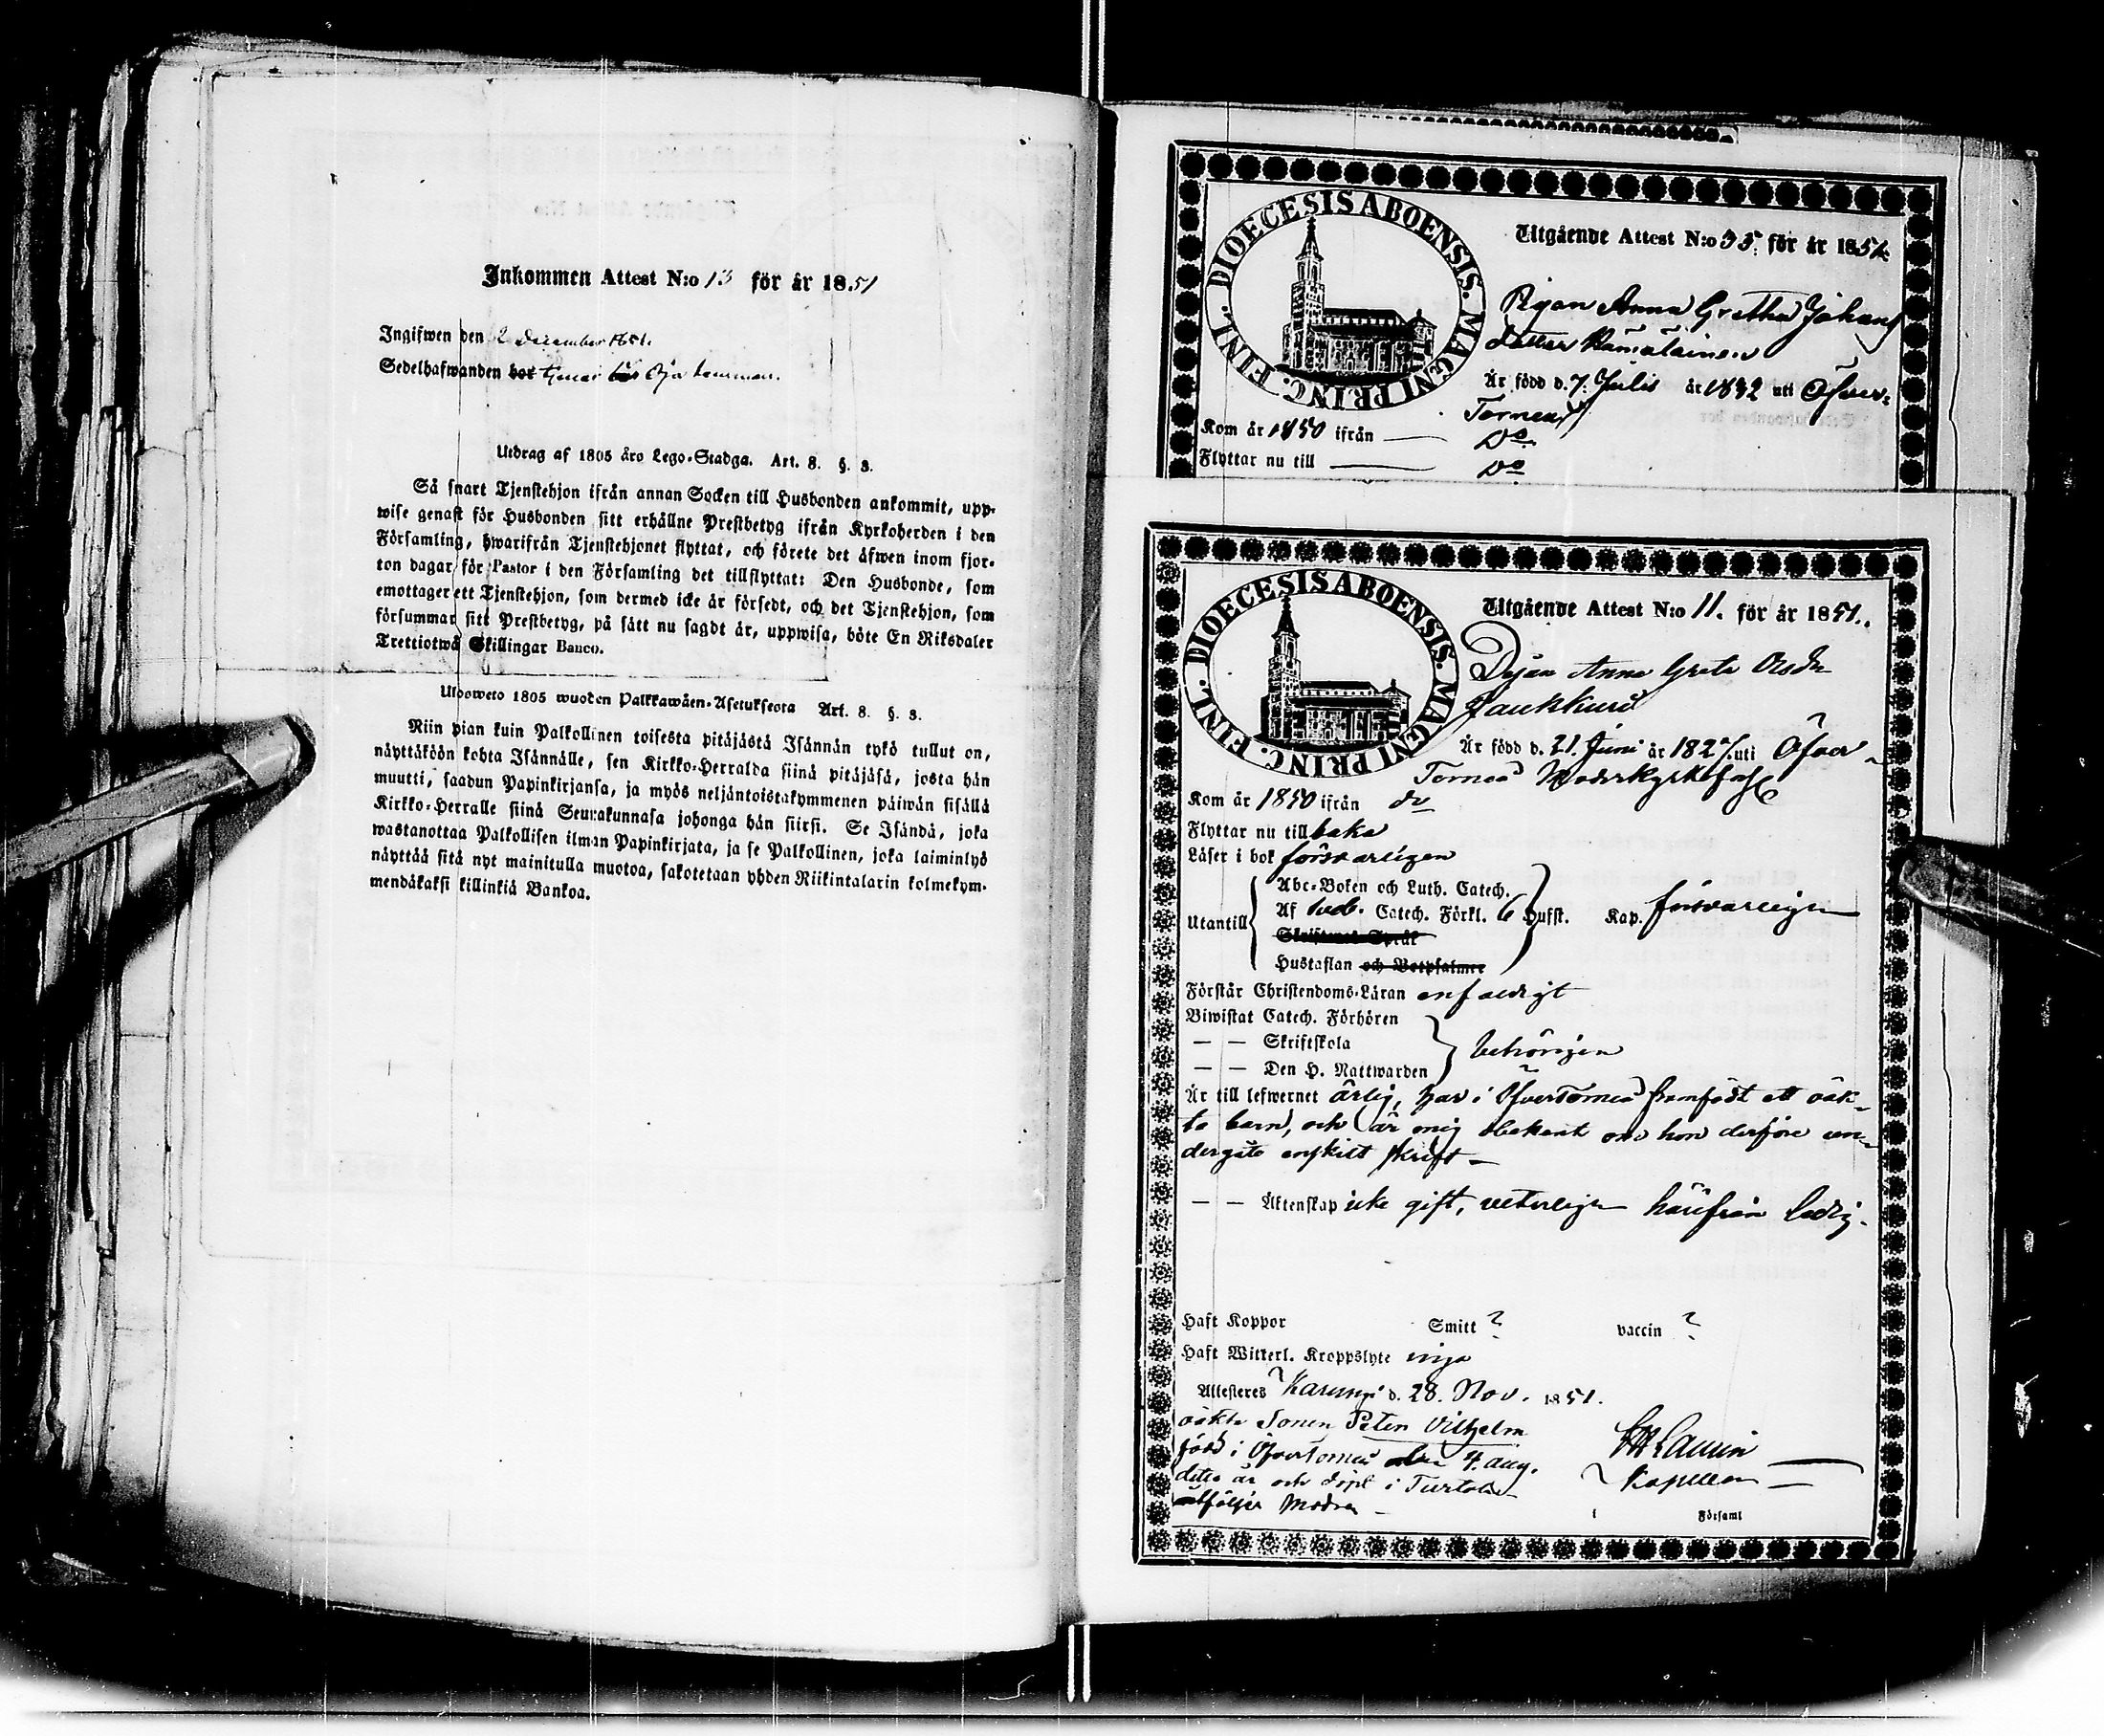 Inkommen Attest N:o 13 för år 1851
Ingifwen den 2 december 1851.
Sedelhafwanden bor tjenar hos Öja
Utdrag af 1805 års Lego-Stadga. Art. 8. §. 3.
Så snart Tjenstehjon ifrån annan Socken till Husbonden ankommit, upp-
wise genast för Husbonden sitt erhållne Prestbetyg ifrån Kyrkoherden i den
Församling, hwarifrån Tjenstehjonet flyttat, och förete det äfwen inom fjor-
ton dagar för Pastor i den Församling det tillflyttat: Den Husbonde, som
emottager ett Tjenstehjon, som dermed icke är försedt, och det Tjenstehjon, som
försummar sitt Prestbetyg, på sätt nu sagdt är, uppwisa, böte En Riksdaler
Trettiotwå Skillingar Banco.
Ulosweto 1805 wuoden Palkkawäen-Asetuksesta Art. 8. §. 3.
Niin pian kuin Palkollinen toisesta pitäjästä Isännän tykö tullut on,
näyttäköön kohta Isännälle, sen Kirkko-Herralda siinä pitäjäsä, josta hän
muutti, saadun Papinkirjansa, ja myös neljäntoistakymmenen päiwän sisällä
Kirkko-Herralle siinä Seurakunnasa johonga hän siirsi. Se Isändä, joka
wastanottaa Palkollisen ilman Papinkirjata, ja se Palkollinen, joka laiminlyö
näyttää sitä nyt mainitulla muotoa, sakotetaan yhden Riikintalarin kolmekym-
mendäkaksi killinkiä Bankoa.
DIOECESIS ABOENSIS. MAGNI PRINC. FINL.
Utgående Attest N:o 35. för år 1851.
Pigan Anna Gretha Johans
dotter Kämäläinen
Är född d. 7. Julii år 1832 uti Öfver-
Torneå
Kom år 1850 ifrån Do
Flyttar nu till Do
DIOECESIS ABOENSIS. MAGNI PRINC. FINL.
Utgående Attest N:o 11. för år 1851.
Pigan Anna Greta Olsdr
Jaukkuri
Är född d. 21. Juni år 1827. uti Öfver-
Torneå Moderkyrkoförs
Kom år 1850 ifrån do
Flyttar nu tillbaka
Läser i bok försvarligen
Abc-Boken och Luth. Catech.
Utantill Af Sveb. Catech. Förkl. 6 Hufst. Kap. försvarligen
Skriftenes Språk
Hustaflan och Botpsalmer
Förstår Christendoms-Läran enfaldigt
Biwistat Catech. Förhören
— — Skriftskola behörigen
— — Den H. Nattwarden
Är till lefwernet ärlig, har i Öfvertorneå framfödt ett oäk-
ta barn, och är mig obekant om hon derföre un-
dergått enskilt skrift -
— — Äktenskap icke gift, veterligen härifrån ledig.
Haft Koppor Smitt ? vaccin ?
Haft Witterl. Kroppslyte inga
Attesteres Karungi d. 28. Nov. 1851.
oäkta Sonen Peter Vilhelm
född i Öfvertorneå den 4. aug.
detta år och döpt i Turtola
åtföljer Modren -
Kapellan
Församl